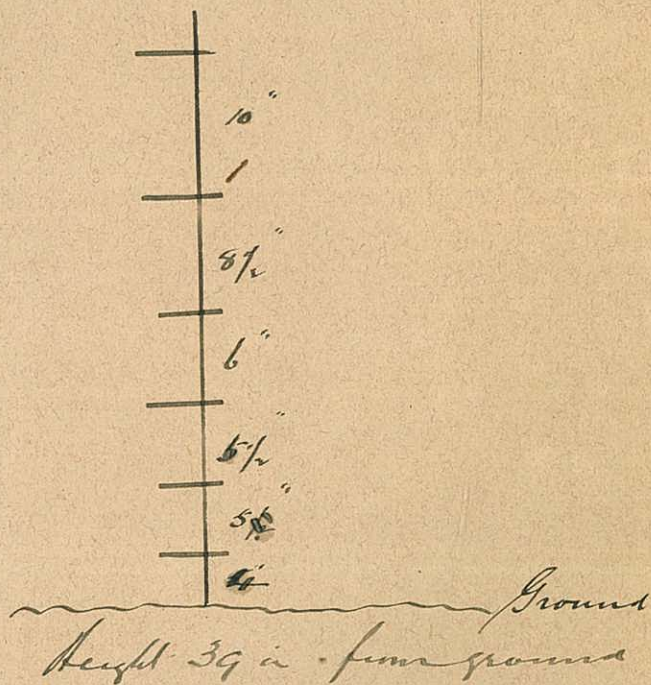 10"
8½"
6"
5½"
5"
4"
Ground
Height 39 in. from ground